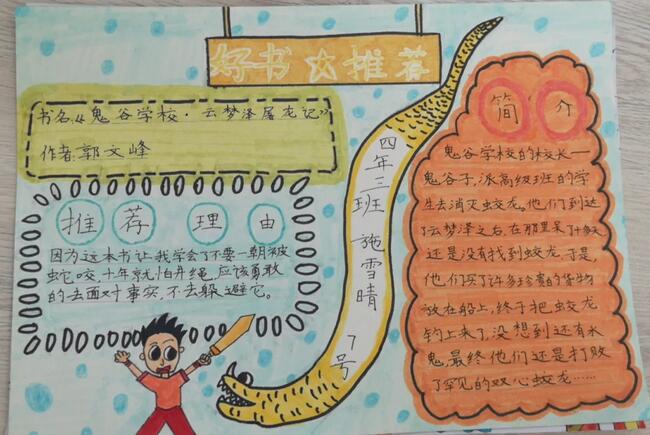 好书☆推荐
书名:《鬼谷学校·云梦泽屠龙记》
作者:郭文峰
推荐理由
因为这本书让我学会了不要一朝被
蛇咬,十年就怕井绳,应该勇敢
的去面对事实,不去躲避它。
四年三班 施雪晴 7号
简介
鬼谷学校的校长——
鬼谷子,派高级班的学
生去消灭蛟龙。他们到达
了云梦泽之后,在那里呆了十多天
还是没有找到蛟龙。于是,
他们买了许多珍贵的货物
放在船上,终于把蛟龙
钓上来了,没想到还有水
鬼,最终他们还是打败
了罕见的双心蛟龙……